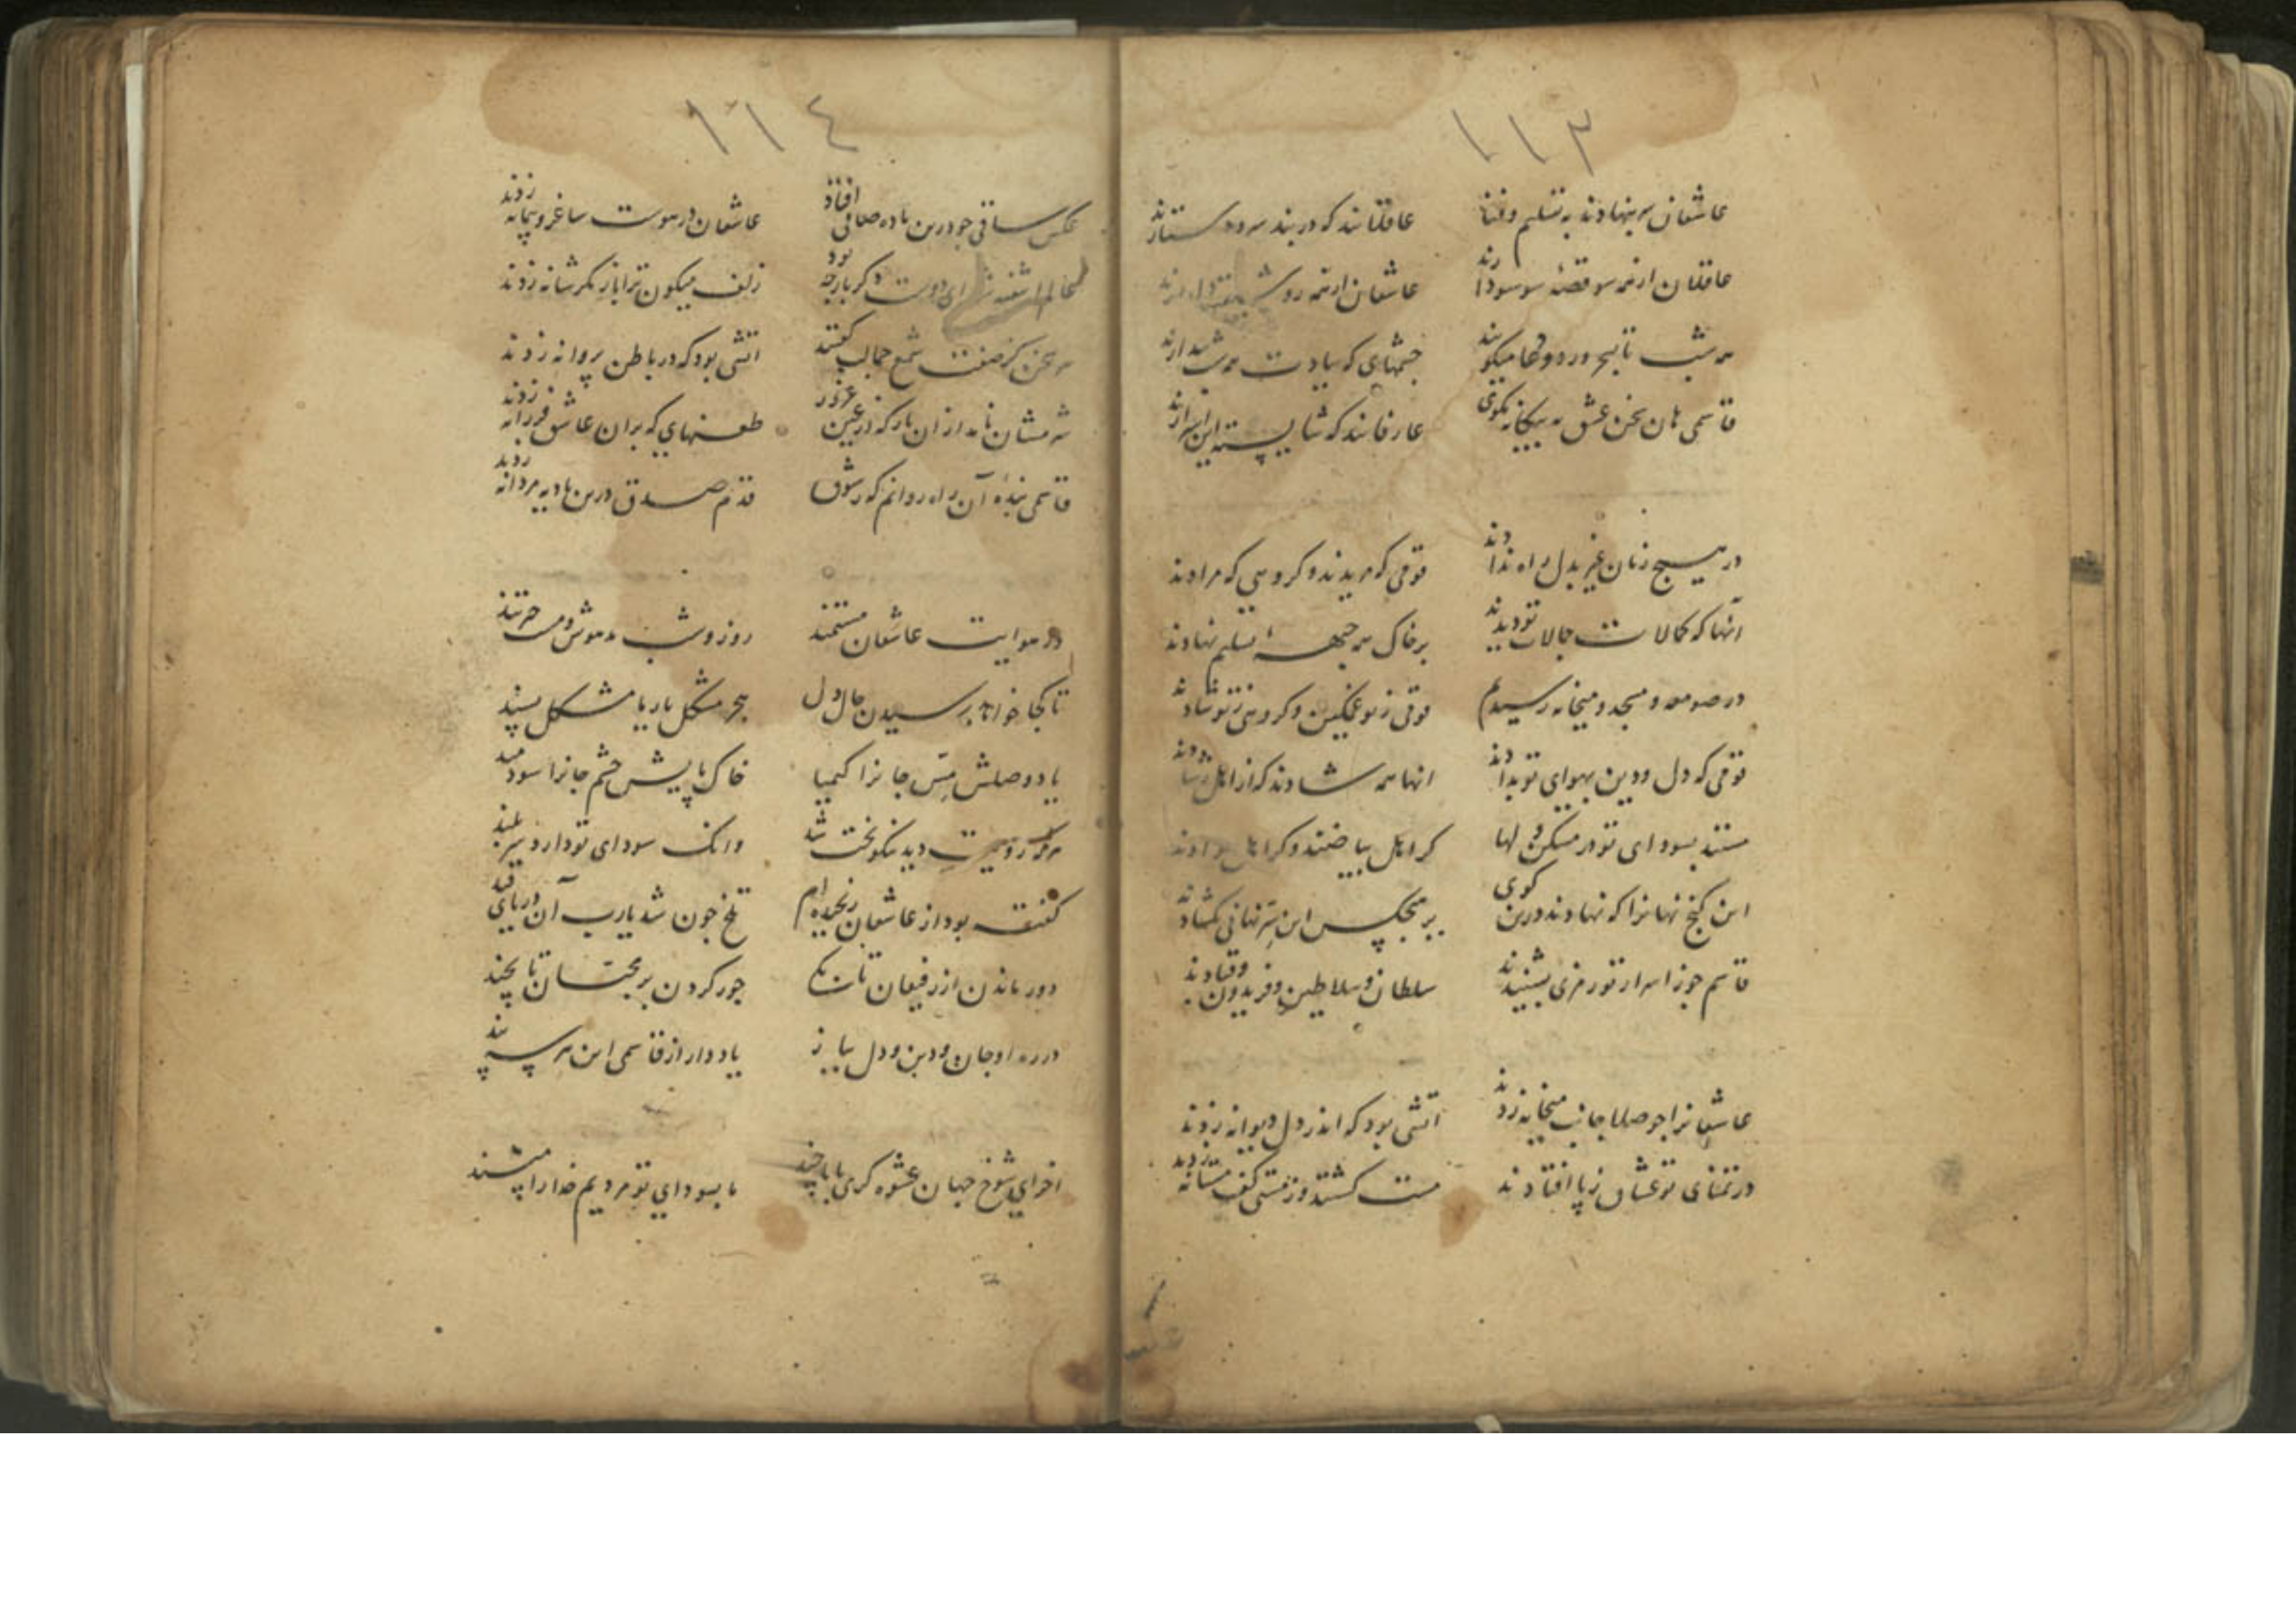 ١١٣
عاشقان سر بنهادند به تسلیم و فنا عاقلانند که در بند سر و دستارند
عاقلان از همه سو قصهٔ سوسودا رند عاشقان از همه رو
همه شب تا بسحر ورد و دعا میکویند چشمهای که بیادت همه شب بیدارند
قاسمی هان سخن عشق به بیکانه مکوی عارفانند که شایسته این اسرارند
در هیچ زمان غیر بدل راه ندادند قومی که مریدند و کروهی که مرادند
آنها که کمالات جمالات تو دیدند بر خاک همه جبههٔ تسلیم نهادند
در صومعه و مسجد و میخانه رسیدم قومی ز تو غمکین و کروهی ز تو شادند
قومی که دل و دین بهوای تو بدادند انها همه شادند که از اهل رشادند
مستند بسودای تو در مسکن دلها کر اهل بیاضند و کر اهل سوادند
این کنج نهانرا که نهادند درین کوی بر هیچکس این سر نهانی نکشادند
قاسم چو ز اسرار تو رمزی بشنیدند سلطان و سلاطین و فریدون و قبادند
عاشقانرا چو صلا جانب میخانه زدند اتشی بود که اندر دل دیوانه زدند
در تمنای تو عشاق ز پا افتادند مست کشتند و ز مستی کف مستانه زدند
١١٤
عکس ساقی چو درین باده صافی افتاد عاشقان در هوست ساغر و پیمانه زدند
عالم اشفته شد ای دوست دکر بار چه بود زلف میکون ترا باز مکر شانه زدند
هر سخن کز صفت شمع جمالت کفتند اتشی بود که در باطن پروانه زدند
طعنهای که بران عاشق فرزانه زدند
قاسمی بندهٔ آن راه روانم که ز شوق قدم صدق درین بادیه مردانه زدند
در هوایت عاشقان مستمند روز و شب مدهوش و مست حیرتند
تا کجا خواهد رسیدن حال دل هجر مشکل یار با مشکل پسند
یاد وصلش مس جانرا کیمیا خاک پایش چشم جانرا سودمند
هر که رویت دید نیکو بخت شد وانک سودای تو دارد سر بلند
کفته بود از عاشقان رنجیده ام تلخ چون شد یارب آن دریای قند
دور ماندن از رفیقان تا بکی جور کردن بر محبان تا بچند
در ره او جان و دین و دل بباز یاد دار از قاسمی این هر سه پند
اخر ای شوخ جهان عشوه کری با ما چند ما بسودای تو مردیم خدارا مپسند